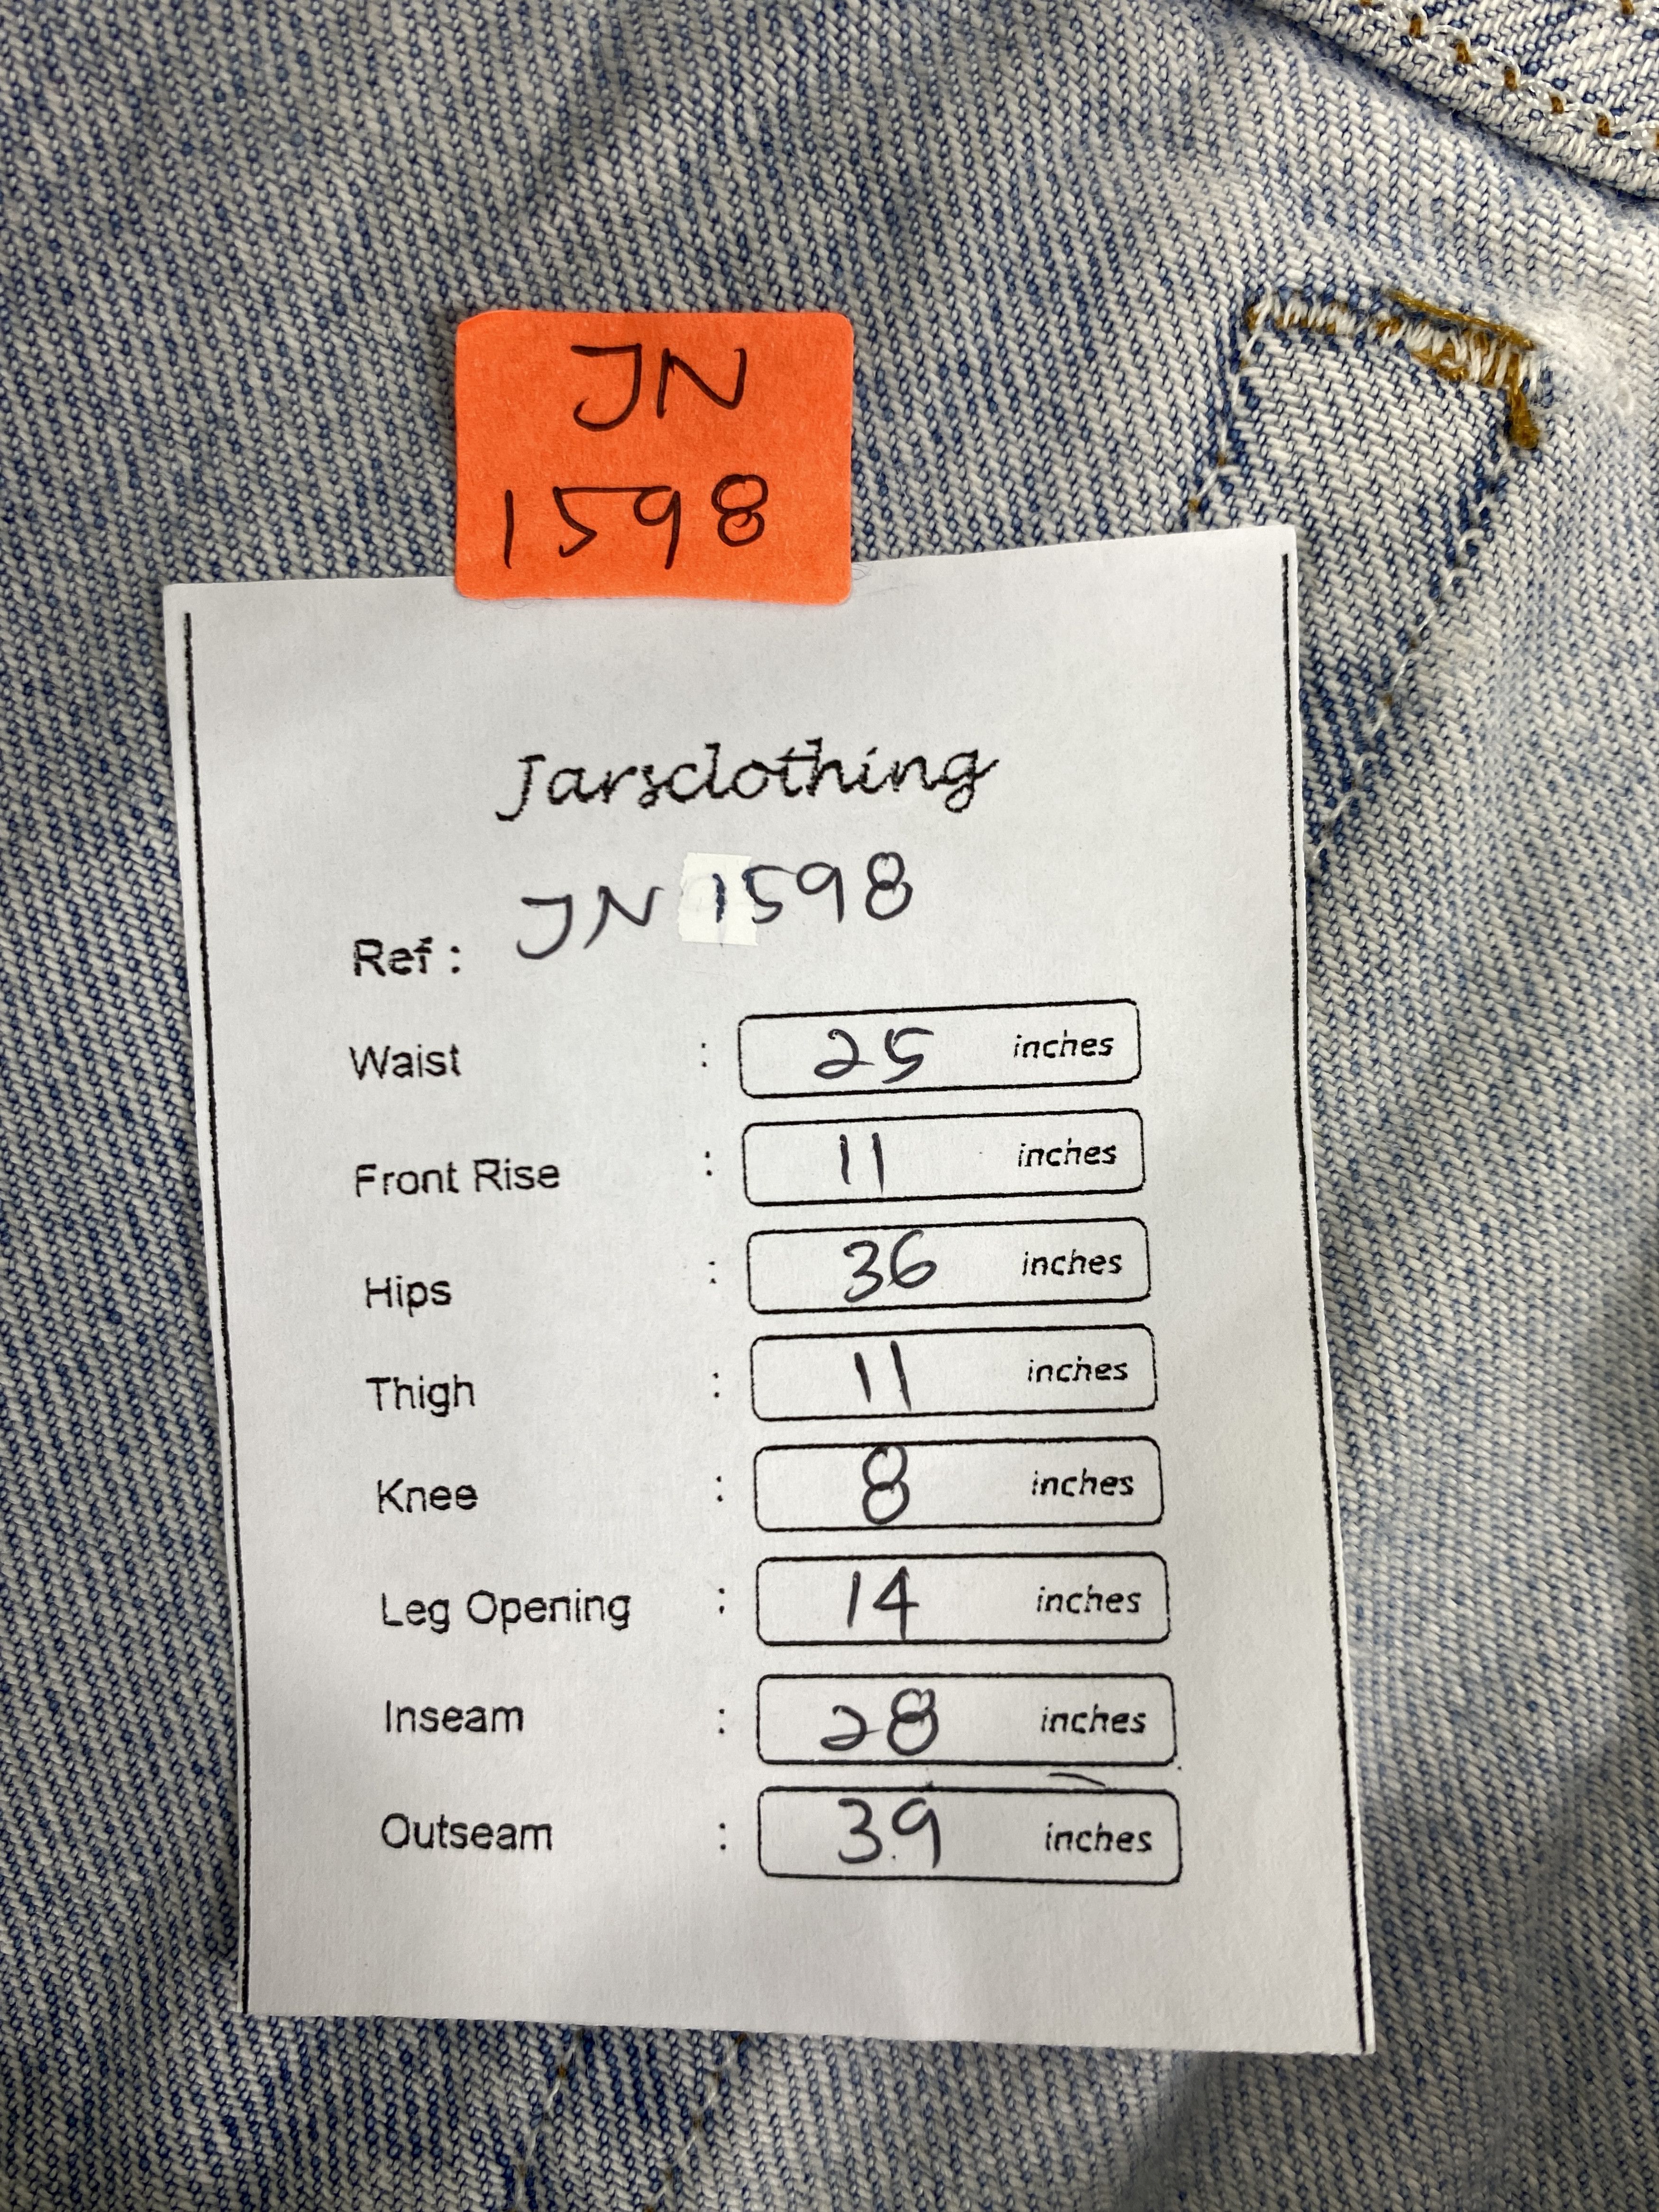 JN
1598
Jarsclothing
Ref : JN 1598
Waist : 25 inches
Front Rise : 11 inches
Hips : 36 inches
Thigh : 11 inches
Knee : 8 inches
Leg Opening : 14 inches
Inseam : 28 inches
Outseam : 39 inches